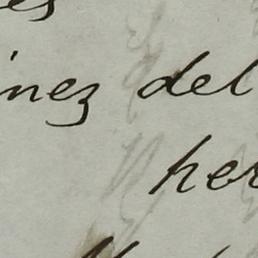 es
inez del
her